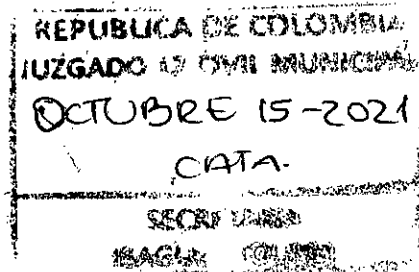 REPUBLICA DE COLOMBIA
JUZGADO 12 CIVIL MUNICIPAL
OCTUBRE 15-2021
CATA.
SECRETARIA
IBAGUE TOLIMA